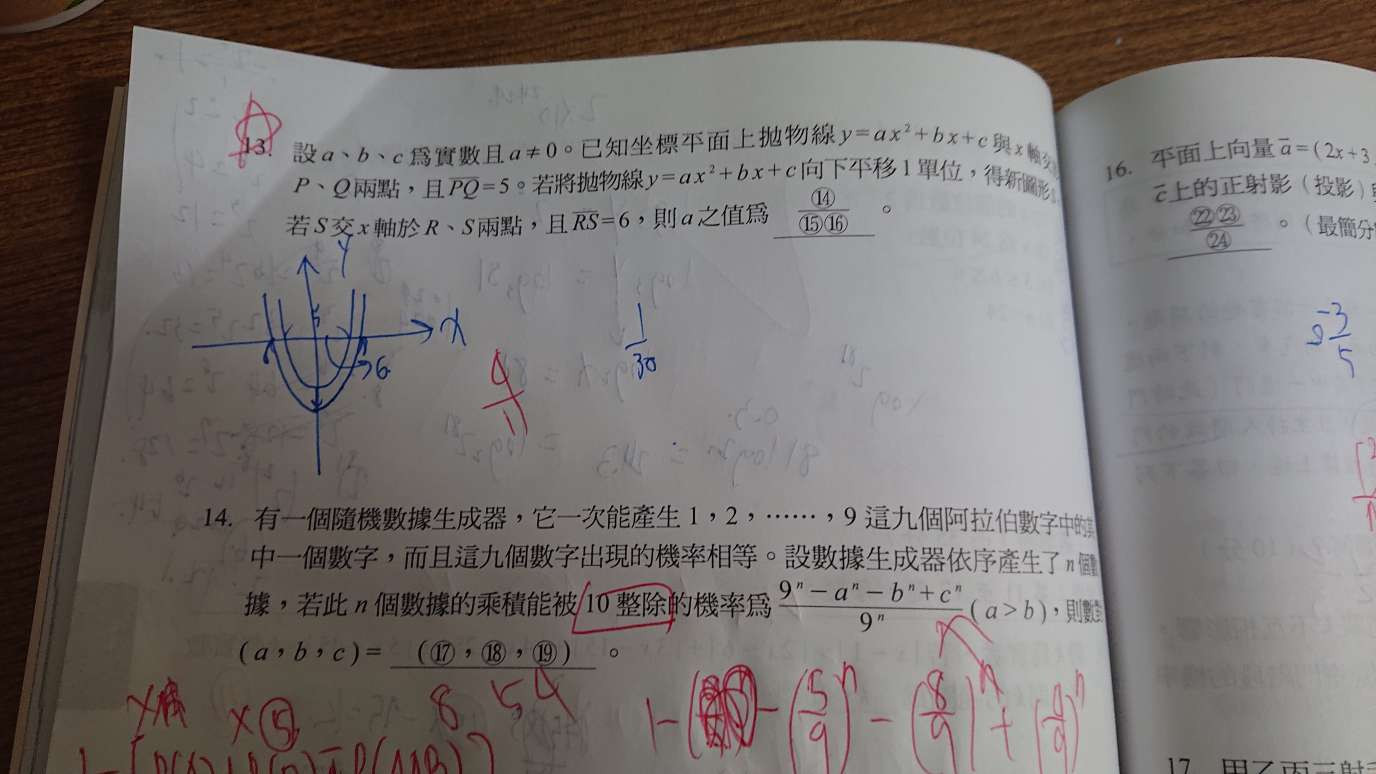 13. 設 a、b、c 爲實數且 a ≠ 0。已知坐標平面上拋物線 y = ax² + bx + c 與 x 軸交
P、Q 兩點，且 PQ = 5。若將拋物線 y = ax² + bx + c 向下平移 1 單位，得新圖形
若 S 交 x 軸於 R、S 兩點，且 RS = 6，則 a 之值爲 ⑭/⑮⑯。
y
x
6
4/11
1/30
14. 有一個隨機數據生成器，它一次能產生 1，2，……，9 這九個阿拉伯數字中的其
中一個數字，而且這九個數字出現的機率相等。設數據生成器依序產生了 n 個數
據，若此 n 個數據的乘積能被 10 整除的機率爲 (9ⁿ − aⁿ − bⁿ + cⁿ)/9ⁿ (a > b)，則數對
(a，b，c) = (⑰，⑱，⑲)。
8 5 4
× ⑤
1 − − (5/9)ⁿ − (8/9)ⁿ + (4/9)ⁿ
16. 平面上向量 a = (2x + 3
c 上的正射影（投影）
㉒㉓/㉔。（最簡分
−3/5
17. 甲乙丙三射手